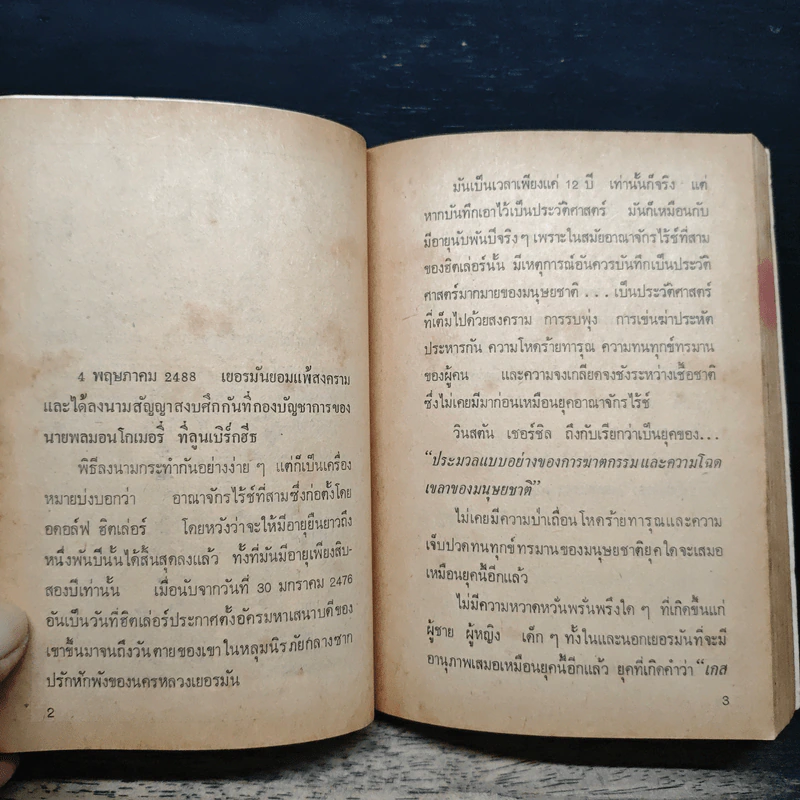 4 พฤษภาคม 2488 เยอรมันยอมแพ้สงคราม
และได้ลงนามสัญญาสงบศึกกันที่กองบัญชาการของ
นายพลมอนโกเมอรี่ ที่ลูนเบิร์กฮีธ
พิธีลงนามกระทำกันอย่างง่าย ๆ แต่ก็เป็นเครื่อง
หมายบ่งบอกว่า อาณาจักรไร้ช์ที่สามซึ่งก่อตั้งโดย
อดอล์ฟ ฮิตเล่อร์ โดยหวังว่าจะให้มีอายุยืนยาวถึง
หนึ่งพันปีนั้นได้สิ้นสุดลงแล้ว ทั้งที่มันมีอายุเพียงสิบ-
สองปีเท่านั้น เมื่อนับจากวันที่ 30 มกราคม 2476
อันเป็นวันที่ฮิตเล่อร์ประกาศตั้งอัครมหาเสนาบดีของ
เขาขึ้นมาจนถึงวันตายของเขาในหลุมนิรภัยกลางซาก
ปรักหักพังของนครหลวงเยอรมัน
2
มันเป็นเวลาเพียงแค่ 12 ปี เท่านั้นก็จริง แต่
หากบันทึกเอาไว้เป็นประวัติศาสตร์ มันก็เหมือนกับ
มีอายุนับพันปีจริง ๆ เพราะในสมัยอาณาจักรไร้ช์ที่สาม
ของฮิตเล่อร์นั้น มีเหตุการณ์อันควรบันทึกเป็นประวัติ
ศาสตร์มากมายของมนุษยชาติ . . . เป็นประวัติศาสตร์
ที่เต็มไปด้วยสงคราม การรบพุ่ง การเข่นฆ่าประหัต
ประหารกัน ความโหดร้ายทารุณ ความทนทุกข์ทรมาน
ของผู้คน และความจงเกลียดจงชังระหว่างเชื้อชาติ
ซึ่งไม่เคยมีมาก่อนเหมือนยุคอาณาจักรไร้ช์
วินสตัน เชอร์ชิล ถึงกับเรียกว่าเป็นยุคของ...
“ประมวลแบบอย่างของการฆาตกรรมและความโฉด
เขลาของมนุษยชาติ”
ไม่เคยมีความป่าเถื่อนโหดร้ายทารุณและความ
เจ็บปวดทนทุกข์ทรมานของมนุษยชาติยุคใดจะเสมอ
เหมือนยุคนี้อีกแล้ว
ไม่มีความหวาดหวั่นพรั่นพรึงใด ๆ ที่เกิดขึ้นแก่
ผู้ชาย ผู้หญิง เด็ก ๆ ทั้งในและนอกเยอรมันที่จะมี
อานุภาพเสมอเหมือนยุคนี้อีกแล้ว ยุคที่เกิดคำว่า “เกส
3